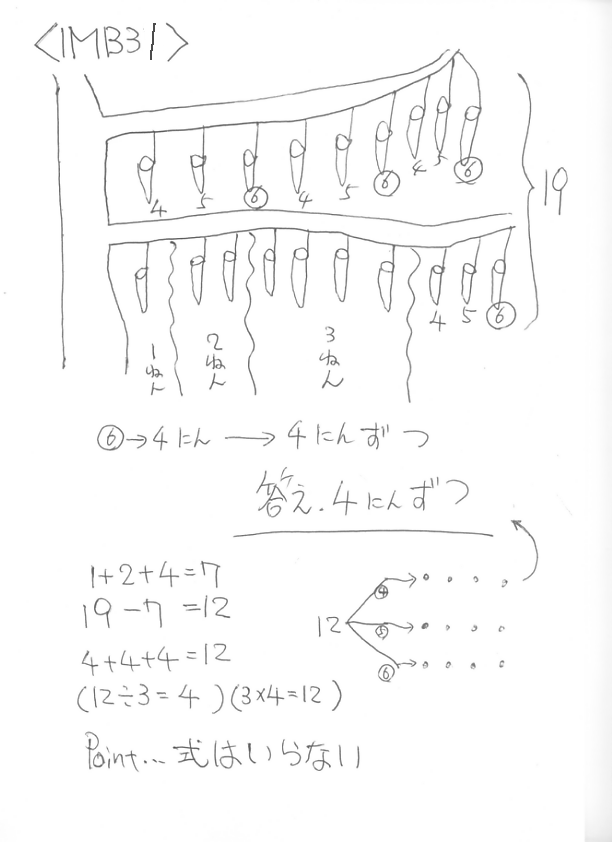 <IMB31>
4 5 ⑥ 4 5 ⑥ 4 5 ⑥
19
4 5 ⑥
1ねん 2ねん 3ねん
⑥→4にん → 4にんずつ
答え.4にんずつ
1+2+4=7
19-7=12
4+4+4=12
(12÷3=4)(3×4=12)
12
④
⑤
⑥
Point... 式はいらない